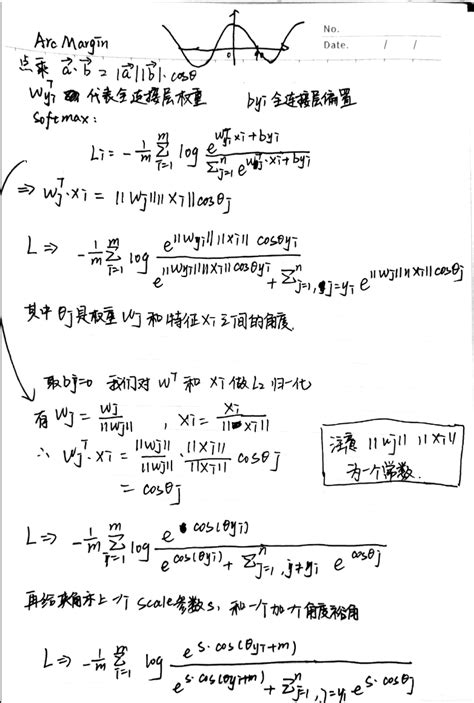 No.
Date. / /
Arc Margin
0
点乘 a⃗·b⃗ = |a⃗||b⃗|·cosθ
Wyi^T 代表全连接层权重 byi 全连接层偏置
Softmax:
Li = -1/m Σ_{i=1}^m log e^{Wyi^T·xi+byi} / Σ_{j=1}^n e^{Wj^T·xi+byi}
⇒ Wj^T·xi = ||Wj||||xi||cosθj
L ⇒ -1/m Σ_{i=1}^m log e^{||Wyi||||xi|| cosθyi} / e^{||Wyi||||xi||cosθyi} + Σ_{j=1, j=yi}^n e^{||Wj||||xi||cosθj}
其中 θj 是权重 Wj 和特征 xi 之间的角度.
取bj=0 我们对 W^T 和 xi 做 L2 归一化
有 Wj = Wj/||Wj|| , xi = xi/||xi||
∴ Wj^T·xi = ||Wj||/||Wj|| · ||xi||/||xi|| cosθj
= cosθj
注意 ||Wj|| ||xi||
为一个常数.
L ⇒ -1/m Σ_{i=1}^m log e^{cos(θyi)} / e^{cos(θyi)} + Σ_{j=1, j≠yi}^n e^{cosθj}
再给乘上一个 scale参数s, 和一个加一个角度裕角
L ⇒ -1/m Σ_{i=1}^m log e^{s·cos(θyi+m)} / e^{s·cos(θyi+m)} + Σ_{j=1, j=yi}^n e^{s·cosθj}